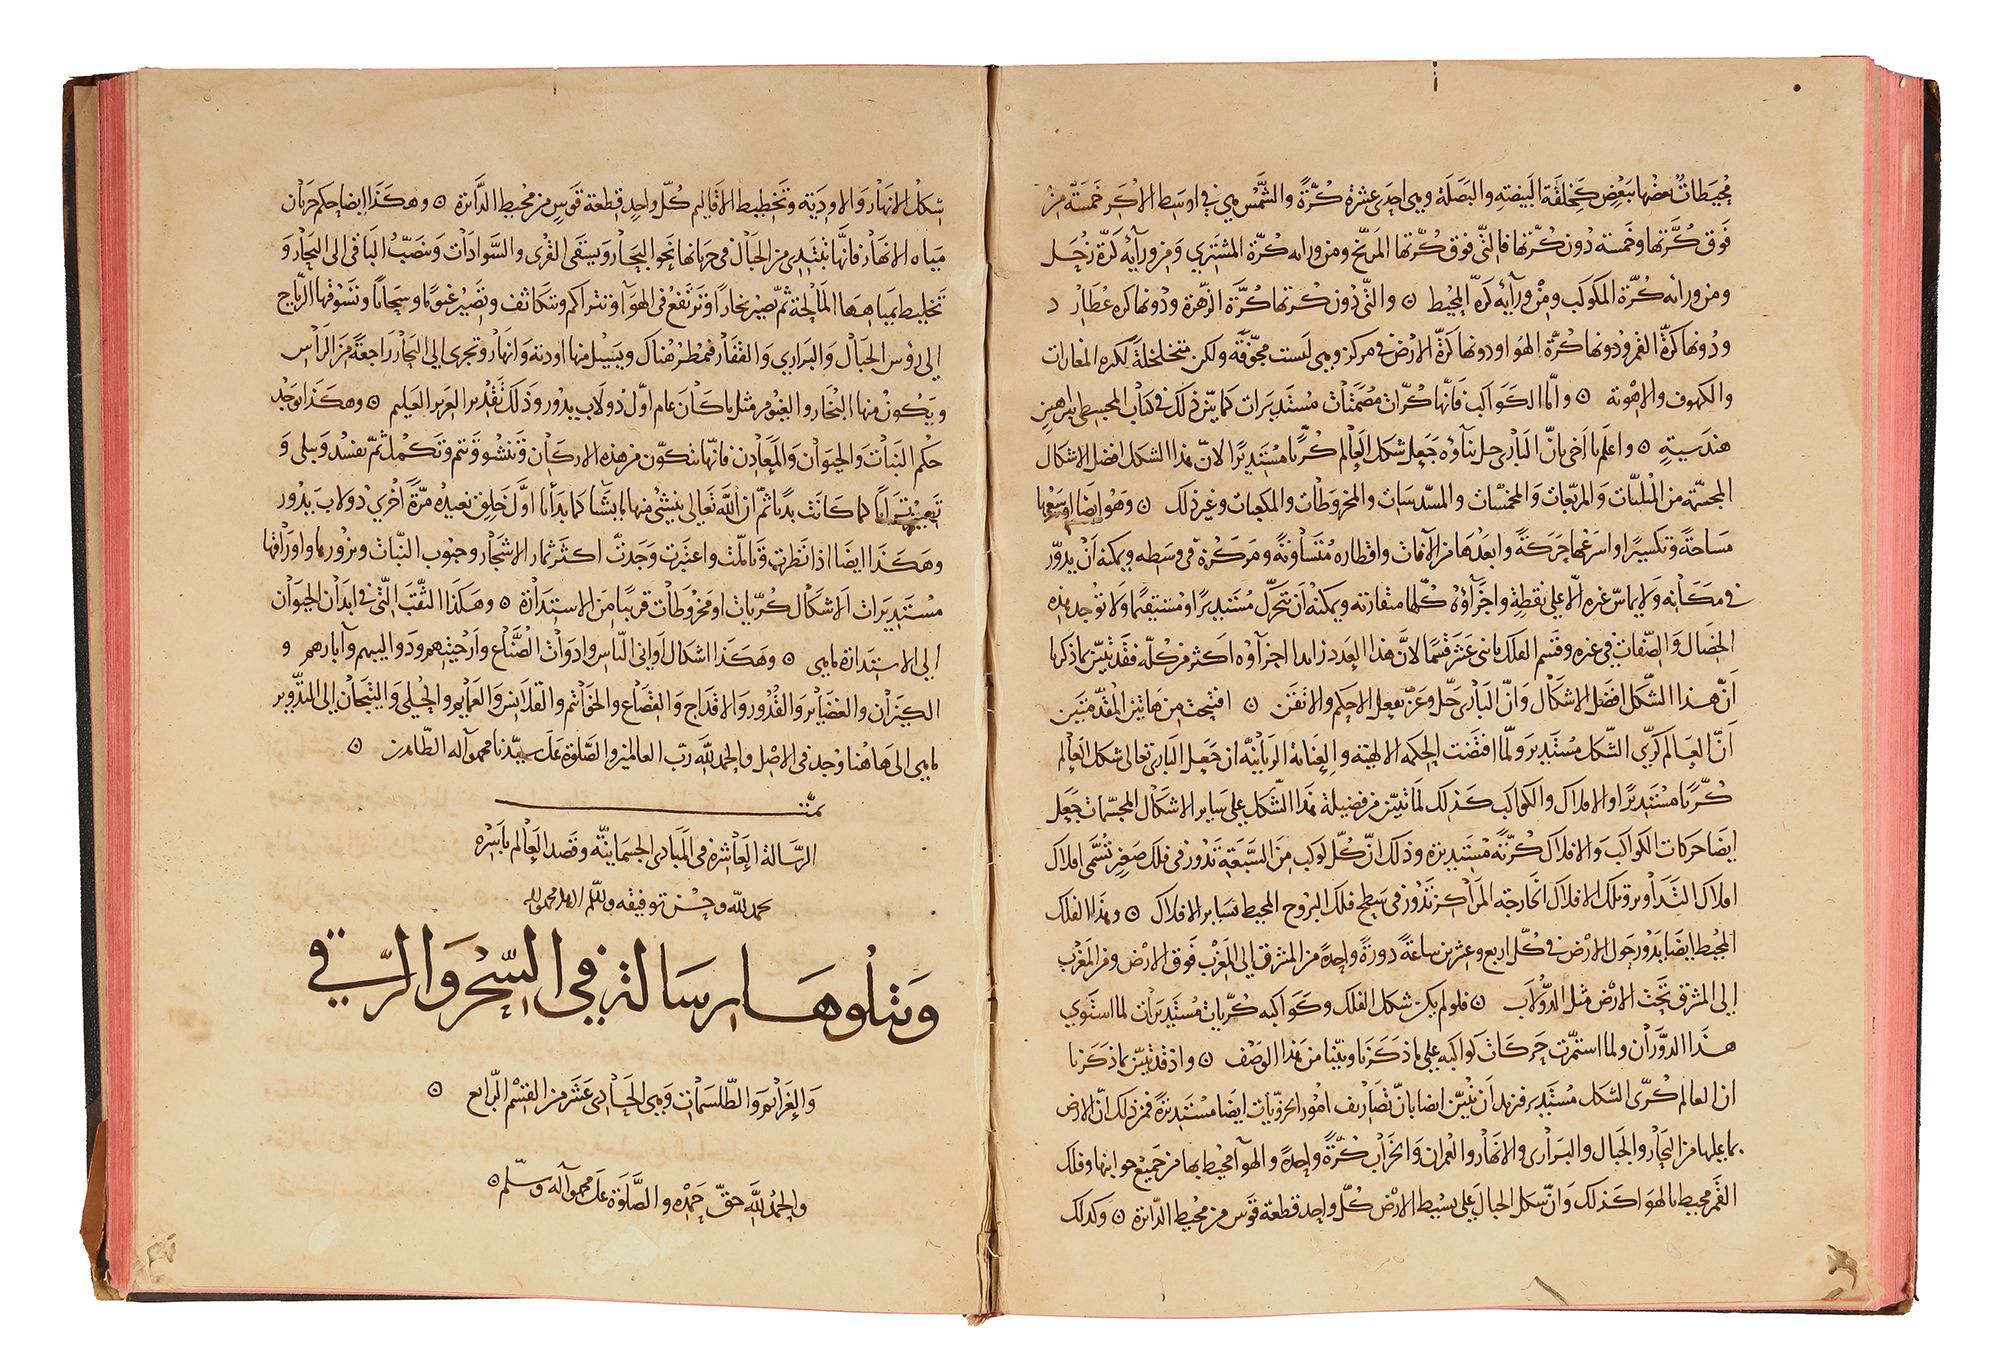 محيطات بعضها ببعض كخلقة البيضة والبصلة وهي احدى عشرة كرّة والشمس هي في اوسط الاكر خمسة من
فوق كرّتها وخمسة دون كرّتها فالتي فوق كرّتها المريخ ومن ورائه كرّة المشتري ومن ورآيه كرّة زحل
ومن ورائه كرّة الكواكب ومن ورآيه كرّة المحيط ۝ والتي دون كرتها كرّة الزهرة ودونها كره عطارد
ودونها كرّة القمر ودونها كرّة الهوا ودونها كرّة الارض في مركز وهي ليست مجوّفة ولكن متخلخلة لكثره المغارات
والكهوف والاهوية ۝ وامّا الكواكب فانّها كرّات مصمتات مستديرات كما بيّن ذلك في كتاب المجسطي ببراهين
هندسية ۝ واعلم يا اخي بانّ الباري جل ثناؤه جعل شكل العالم كرّيا مستديرا لانّ هذا الشكل افضل الاشكال
المجسّمة من المثلثات والمربّعات والمخمّسات والمسدّسات والمخروطات والمكعبات وغير ذلك ۝ وهو ايضا اوسعها
مساحة وتكسيرا واسرعها حركة وابعدها من الآفات واقطاره متساوية ومركزه في وسطه ويمكنه ان يدور
في مكانه ولا يماسّ غيره الّا على نقطة واجزآؤه كلّها متقاربة ويمكنه ان يتحرّك مستديرا ومستقيما ولا توجد هذه
الخصال والصفات في غيره وقسم الفلك باثني عشر قسما لانّ هذا العدد زايدا اجزآوه اكثر من كلّه فقد تبيّن بما ذكرنا
انّ هذا الشكل افضل الاشكال وانّ الباري جلّ وعزّ يفعل الاحكم والاتقن ۝ افنتجت من هاتين المقدّمتين
انّ العالم كرّي الشكل مستدير ولمّا اقتضت الحكمه الالهية والعناية الربانيّة ان جعل الباري تعالى شكل العالم
كرّيا مستديرا والافلاك والكواكب كذلك لما تبيّن من فضيلة هذا الشكل على ساير الاشكال المجسّمات جعل
ايضا حركات الكواكب والافلاك كريّة مستديرة وذلك انّ كلّ كوكب من السبعة تدور في فلك صغير تسمّى افلاك
افلاك التداوير وتلك الافلاك الخارجة المراكز تدور في سطح فلك البروج المحيط بساير الافلاك ۝ وهذا الفلك
المحيط ايضا يدور حول الارض في كلّ اربع وعشرين ساعة دورة واحدة من المشرق الى المغرب فوق الارض ومن المغرب
الى المشرق تحت الارض مثل الدولاب ۝ فلو لم يكن شكل الفلك وكواكبه كرّيات مستديرات لما استوي
هذا الدوران ولما استمرّت حركات كواكبه على ما ذكرنا وبيّنا من هذا الوصف ۝ واذ قد تبيّن بما ذكرنا
ان العالم كرّى الشكل مستدير فنريد ان نبيّن ايضا بانّ تصاريف امور الجزويّات ايضا مستديرة فمن ذلك انّ الارض
بما عليها من البحار والجبال والبراري والانهار والعمران والخراب كرّة واحدة والهوآ محيط بها من جميع جوانبها وفلك
القمر محيط بالهوا كذلك وانّ شكل الجبال على بسيط الارض كلّ واحد قطعة قوس من محيط الدائرة ۝ وكذلك
شكل الانهار والاودية وتخطيط الاقاليم كلّ واحد قطعة قوس من محيط الدائرة ۝ وهكذا ايضا حكم جريان
مياه الانهار فانّها تبتدي من الجبال في جريانها نحو البحار ويسقى القرى والسوادات وينصبّ الباقي الى البحار و
تختليط بمياهها المالحة ثمّ تصير بخارا وترتفع في الهوآ وتتراكم وتتكاثف وتصير غيوما وسحابا وتسوقها الرياح
الى رؤس الجبال والبراري والقفار فتمطر هناك ويسيل منها اودية وانهار وتجرى الى البحار راجعة من الرأس
ويكون منها البخار والغيوم مثل ما كان عام اوّل دولاب يدور وذلك تقدير العزيز العليم ۝ وهكذا يوجد
حكم النبات والحيوان والمعادن فانّها تتكوّن من هذه الاركان وتنشو وتتم وتكمل ثمّ تفسد وتبلى و
تعيّت ترابا كما كانت بديا ثمّ انّ الله تعالى ينشئ منها ما يشآ كما بدأنا اوّل خلق نعيده مرّة اخرى دولاب يدور
وهكذا ايضا اذا نظرت وتاملت واعتبرت وجدت اكثر ثمار الاشجار وحبوب النبات وبزورها واوراقها
مستديرات الاشكال كرّيات او مخروطات قريبا من الاستدارة ۝ وهكذا الثقب التي في ابدان الحيوان
الى الاستدارة ماهي ۝ وهكذا اشكال اواني النّاس وادوات الصنّاع وارحيتهم ودواليبهم وآبارهم و
الكيزان والغضاير والقدور والاقداح والقصاع والخواتم والقلانس والعمايم والحُلى والتيجان الى التدوير
ماهي الى هاهنا وجد في الاصل والحمد لله رب العالمين والصلوة على سيّدنا محمد وآله الطاهرين ۝
تمّت
الرسالة العاشرة في المبادي الجسمانيّة وقصد العالم باسره
بحمد الله وحسن توفيقه
وتتلوها رسالة في السّحر والرّقي
والعزائم والطلسمات وهي الحادي عشر من القسم الرابع ۝
والحمد لله حقّ حمده والصّلوة على محمد وآله وسلّم ۝